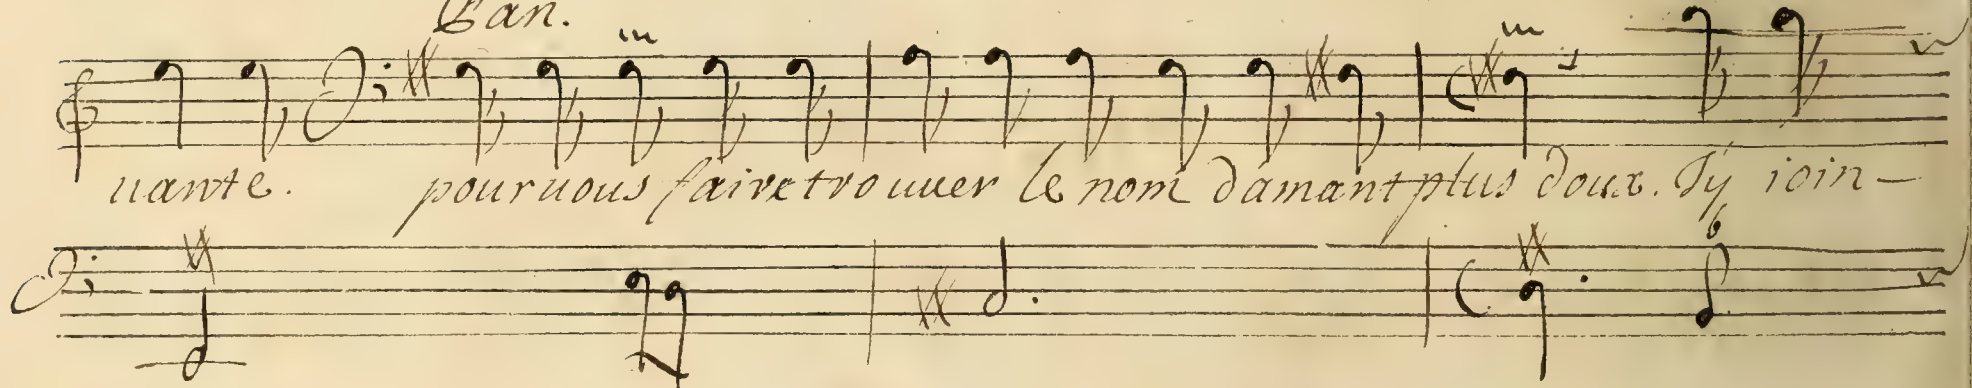 Pan.
uante. pour uous faire trouuer le nom damant plus doux. J'y ioin-
6